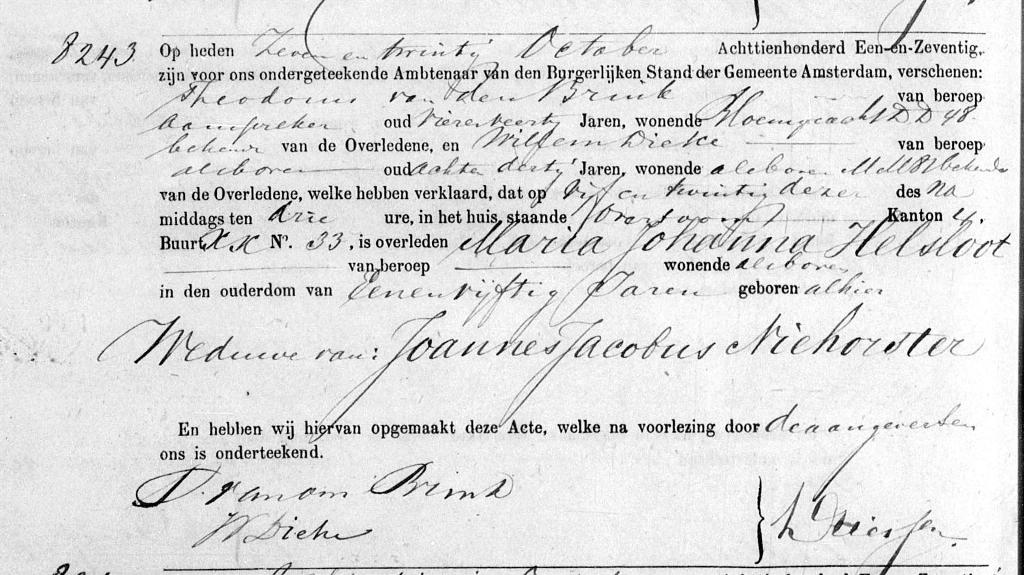 8243 Op heden Zeven en twintig October Achttienhonderd Een-en-Zeventig,
zijn voor ons ondergeteekende Ambtenaar van den Burgerlijken Stand der Gemeente Amsterdam, verschenen:
Theodorus van den Brink van beroep
Aanspreker oud Vierenveertig Jaren, wonende DD 48.
bekende van de Overledene, en Willem Dieke van beroep
als boven oud achtendertig Jaren, wonende als boven bekende
van de Overledene, welke hebben verklaard, dat op Vijf en twintig dezer des na
middags ten drie ure, in het huis, staande Kanton 4.
Buurt XX N°. 33, is overleden Maria Johanna Helsloot
van beroep wonende als boven
in den ouderdom van Eenenvijftig Jaren geboren alhier
Weduwe van: Joannes Jacobus Niehorster
En hebben wij hiervan opgemaakt deze Acte, welke na voorlezing door de aangevers en
ons is onderteekend.
Brink
W Dieke